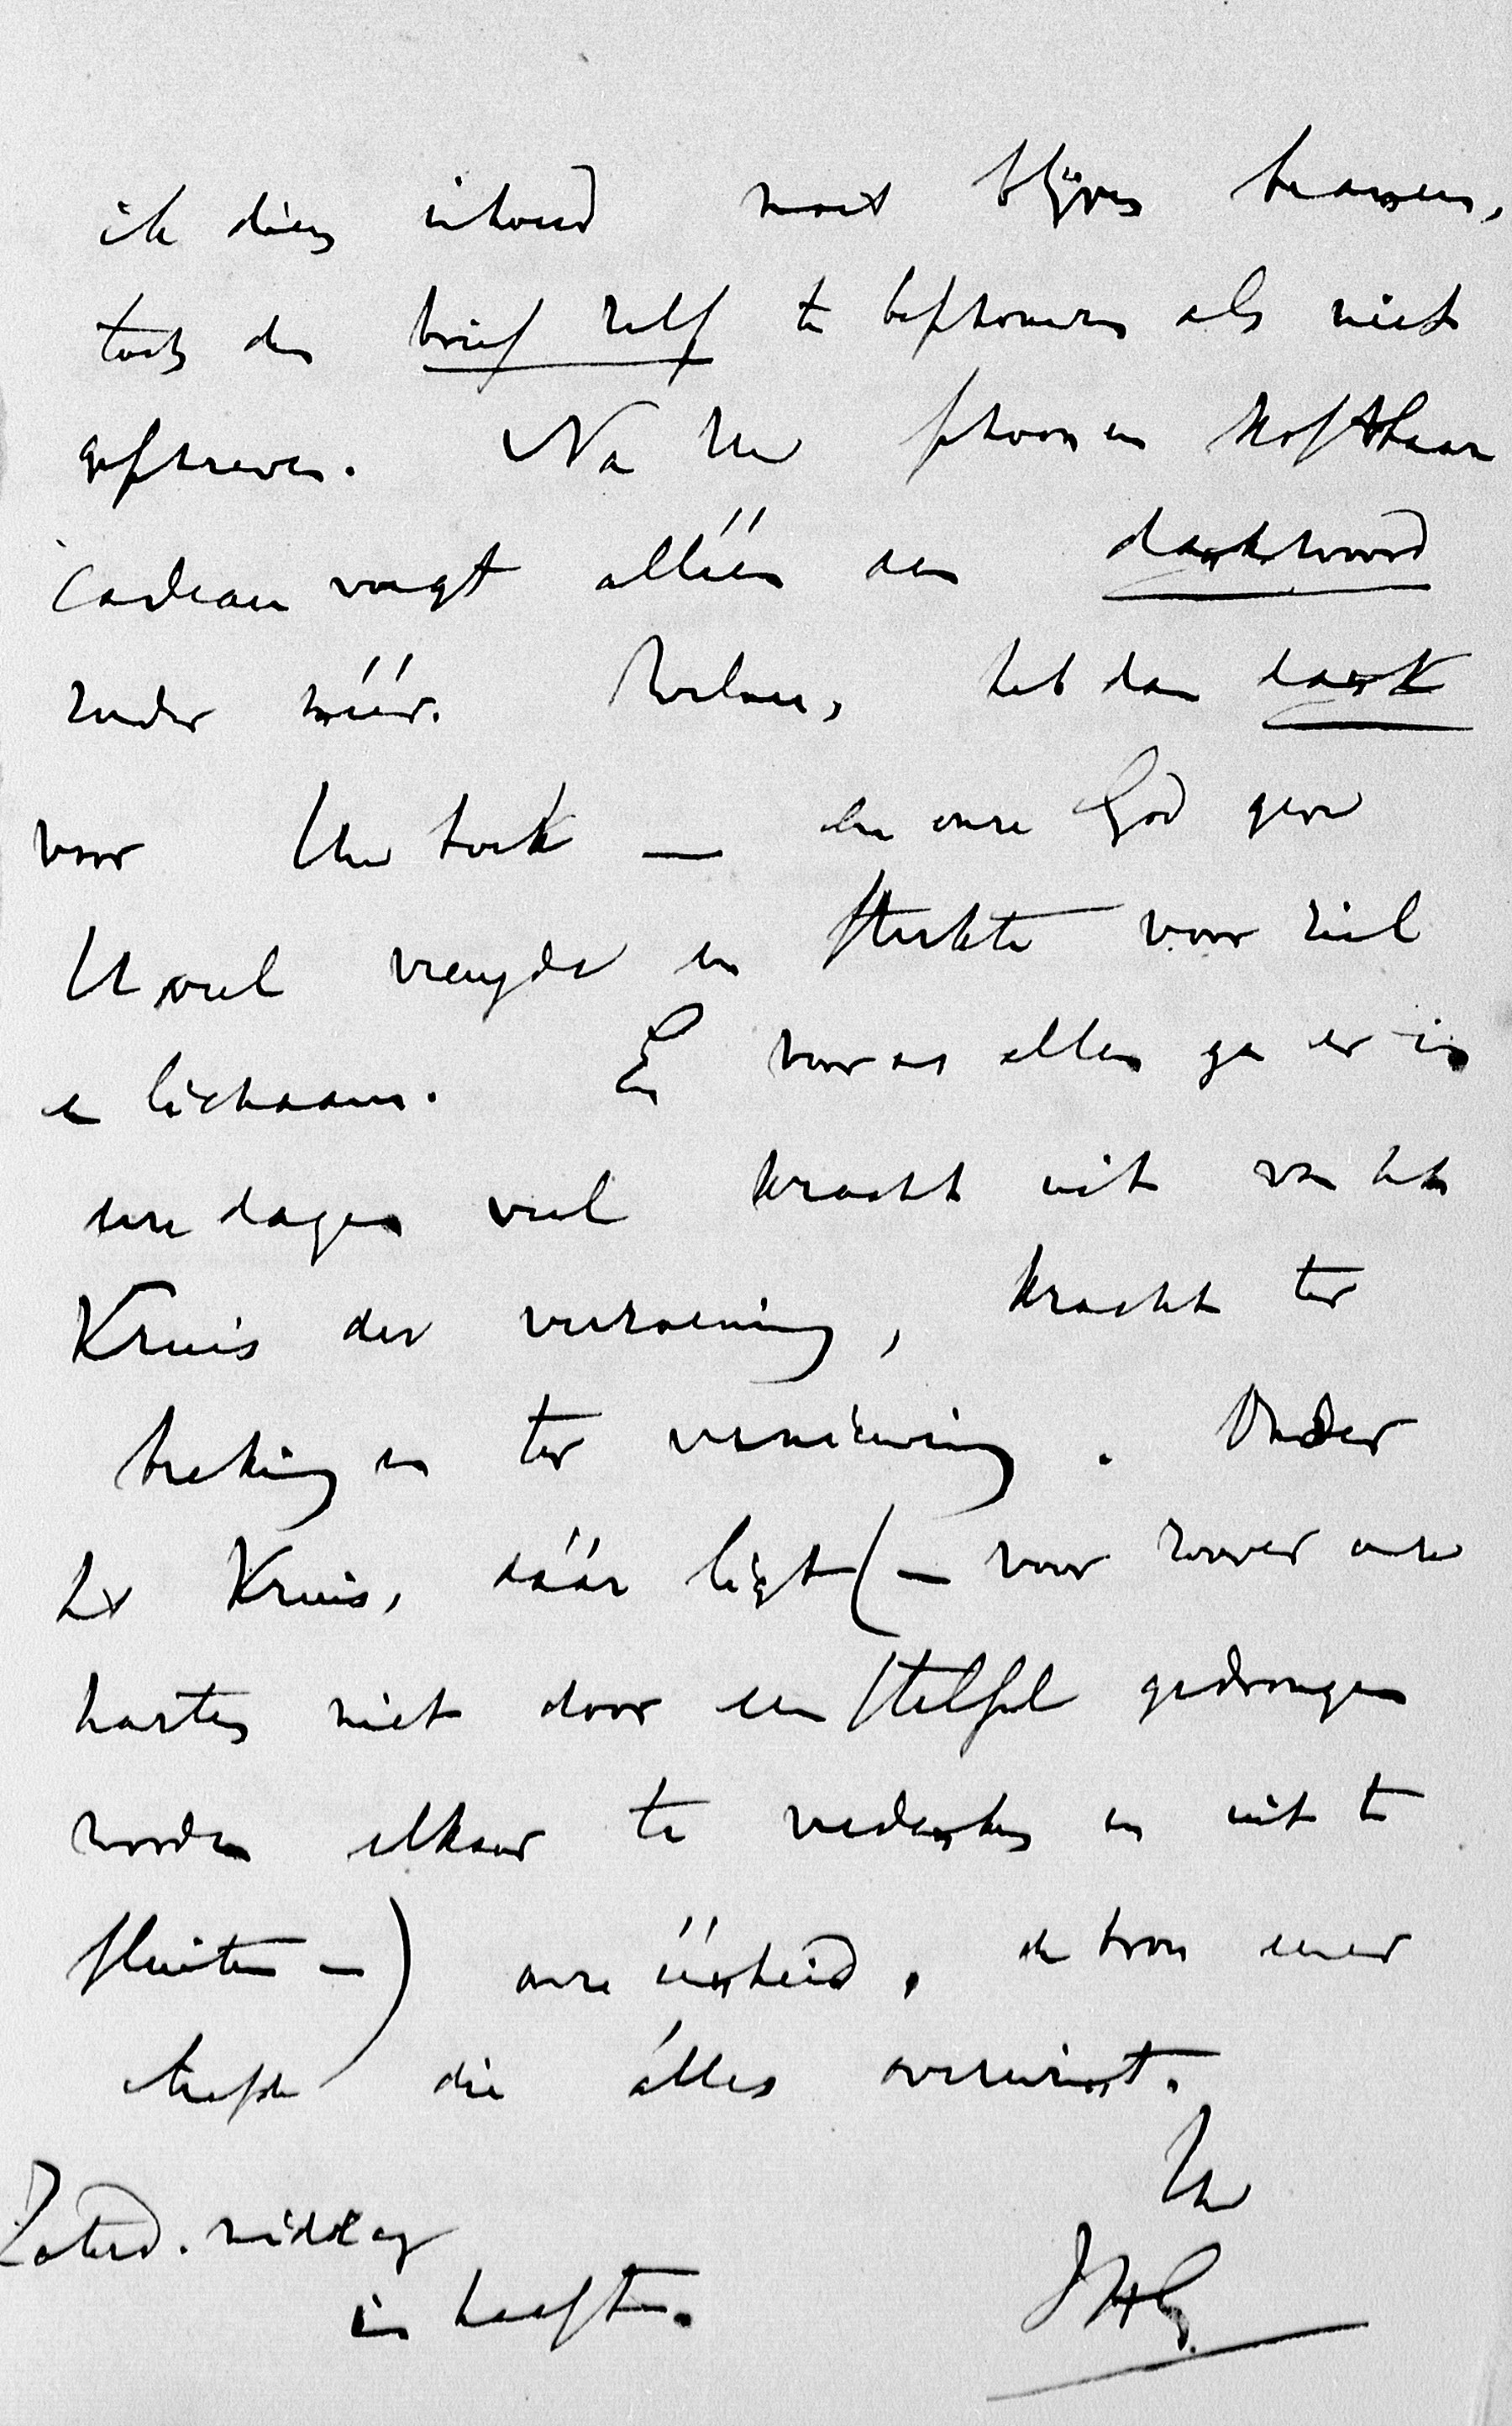 ik diens inhoud moet blijven beamen,
toch den brief zelf te beschouwen als niet
geschreven. Na Uw schoon en kostbaar
cadeau voegt alléén een dankwoord
zonder méér. Welnu, heb dan dank
voor Uw boek — en onze God geve
U veel vreugde en sterkte voor ziel
en lichaam. En voor ons allen ga er in
deze dagen veel kracht uit van het
Kruis der verzoening, kracht ter
breking en ter vernieuwing. Onder
het Kruis, dáár ligt (— voor zoover onze
harten niet door een stelsel gedrongen
worden elkaar te verdenken en uit te
sluiten —) onze éénheid, de bron eener
liefde die álles overwint.
Uw
Zaterd. middag
in haast.
JHG.